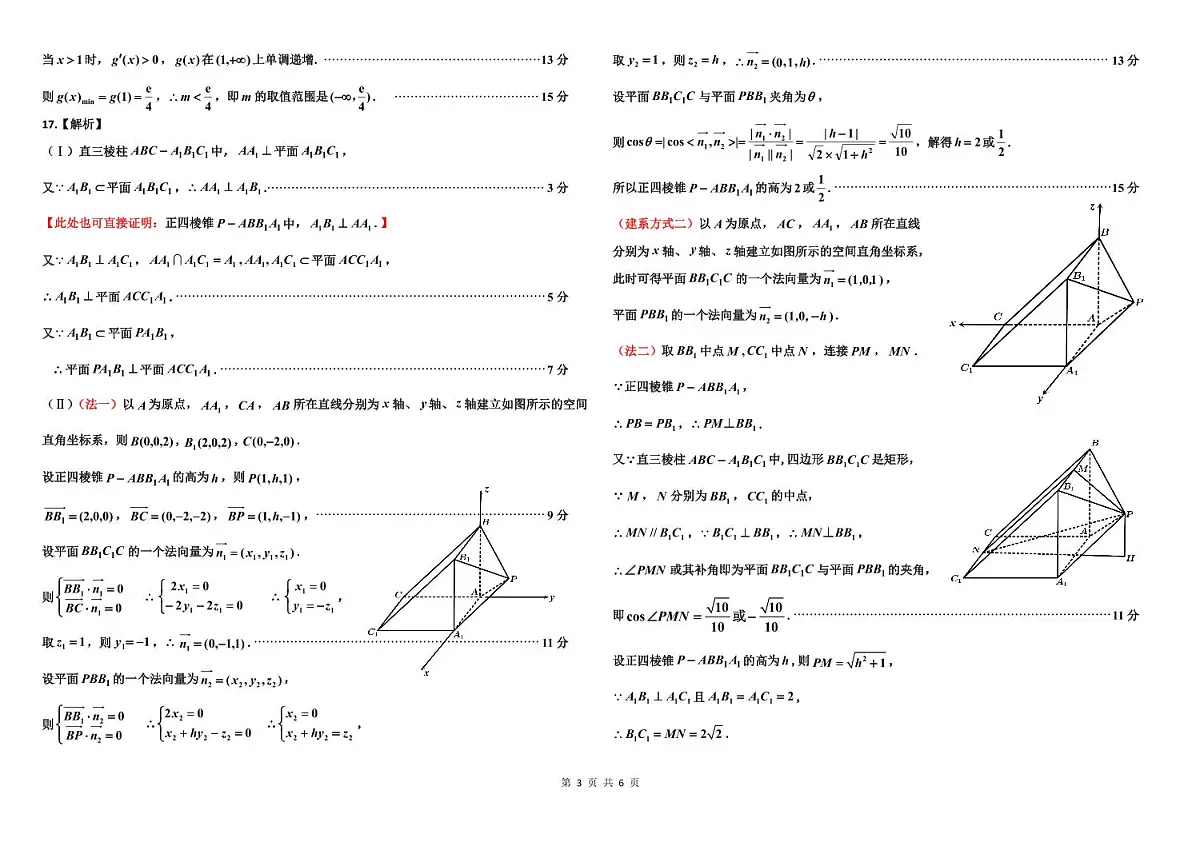 当 x > 1 时，g′(x) > 0，g(x) 在 (1,+∞) 上单调递增. ……13 分
则 g(x)min = g(1) = e/4，∴ m < e/4，即 m 的取值范围是 (−∞, e/4). ……15 分
17.【解析】
(Ⅰ) 直三棱柱 ABC − A₁B₁C₁ 中，AA₁ ⊥ 平面 A₁B₁C₁，
又∵ A₁B₁ ⊂ 平面 A₁B₁C₁，∴ AA₁ ⊥ A₁B₁. ……3 分
【此处也可直接证明：正四棱锥 P − ABB₁A₁ 中，A₁B₁ ⊥ AA₁.】
又∵ A₁B₁ ⊥ A₁C₁，AA₁ ∩ A₁C₁ = A₁, AA₁, A₁C₁ ⊂ 平面 ACC₁A₁，
∴ A₁B₁ ⊥ 平面 ACC₁A₁. ……5 分
又∵ A₁B₁ ⊂ 平面 PA₁B₁，
∴ 平面 PA₁B₁ ⊥ 平面 ACC₁A₁. ……7 分
(Ⅱ)(法一) 以 A 为原点，AA₁，CA，AB 所在直线分别为 x 轴、y 轴、z 轴建立如图所示的空间
直角坐标系，则 B(0,0,2)，B₁(2,0,2)，C(0,−2,0).
设正四棱锥 P − ABB₁A₁ 的高为 h，则 P(1,h,1)，
BB₁ = (2,0,0)，BC = (0,−2,−2)，BP = (1,h,−1)，……9 分
设平面 BB₁C₁C 的一个法向量为 n₁ = (x₁, y₁, z₁).
则 { BB₁ · n₁ = 0 BC · n₁ = 0 ∴ { 2x₁ = 0 −2y₁ − 2z₁ = 0 ∴ { x₁ = 0 y₁ = −z₁ ，
取 z₁ = 1，则 y₁ = −1，∴ n₁ = (0,−1,1). ……11 分
设平面 PBB₁ 的一个法向量为 n₂ = (x₂, y₂, z₂)，
则 { BB₁ · n₂ = 0 BP · n₂ = 0 ∴ { 2x₂ = 0 x₂ + hy₂ − z₂ = 0 ∴ { x₂ = 0 x₂ + hy₂ = z₂ ，
z
B
B₁
P
C
A
y
C₁
A₁
x
取 y₂ = 1，则 z₂ = h，∴ n₂ = (0,1,h). ……13 分
设平面 BB₁C₁C 与平面 PBB₁ 夹角为 θ，
则 cosθ = |cos < n₁, n₂ >| = |n₁ · n₂| / |n₁||n₂| = |h−1| / √2 × √1+h² = √10/10，解得 h = 2 或 1/2.
所以正四棱锥 P − ABB₁A₁ 的高为 2 或 1/2. ……15 分
(建系方式二) 以 A 为原点，AC，AA₁，AB 所在直线
分别为 x 轴、y 轴、z 轴建立如图所示的空间直角坐标系，
此时可得平面 BB₁C₁C 的一个法向量为 n₁ = (1,0,1)，
平面 PBB₁ 的一个法向量为 n₂ = (1,0,−h).
(法二) 取 BB₁ 中点 M，CC₁ 中点 N，连接 PM，MN.
∵ 正四棱锥 P − ABB₁A₁，
∴ PB = PB₁，∴ PM ⊥ BB₁.
又∵ 直三棱柱 ABC − A₁B₁C₁ 中，四边形 BB₁C₁C 是矩形，
∵ M，N 分别为 BB₁，CC₁ 的中点，
∴ MN // B₁C₁，∵ B₁C₁ ⊥ BB₁，∴ MN ⊥ BB₁，
∴ ∠PMN 或其补角即为平面 BB₁C₁C 与平面 PBB₁ 的夹角，
即 cos∠PMN = √10/10 或 − √10/10. ……11 分
设正四棱锥 P − ABB₁A₁ 的高为 h，则 PM = √h²+1，
∵ A₁B₁ ⊥ A₁C₁ 且 A₁B₁ = A₁C₁ = 2，
∴ B₁C₁ = MN = 2√2.
z
B
B₁
P
x
C
A
C₁
A₁
y
B
M
B₁
P
C
A
N
H
C₁
A₁
第 3 页 共 6 页